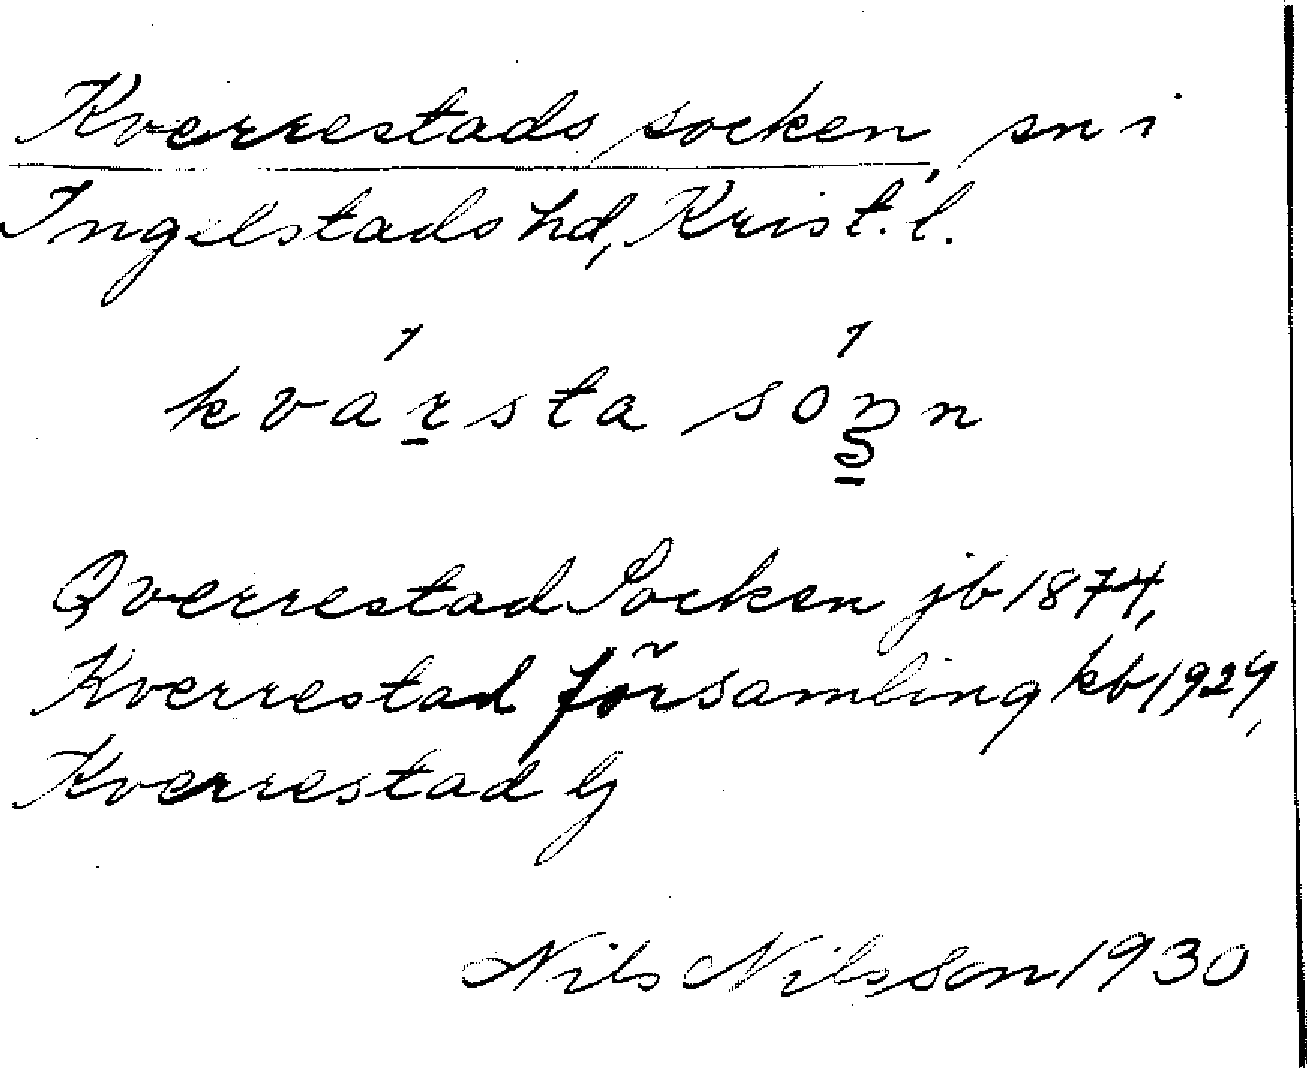 Kverrestads socken, sn i
Ingelstads hd, Krist. l.
kvársta só n
Qverrestad Socken jb 1874,
Kverrestad församling kb 1929,
Kverrestad
Nils Nilsson 1930